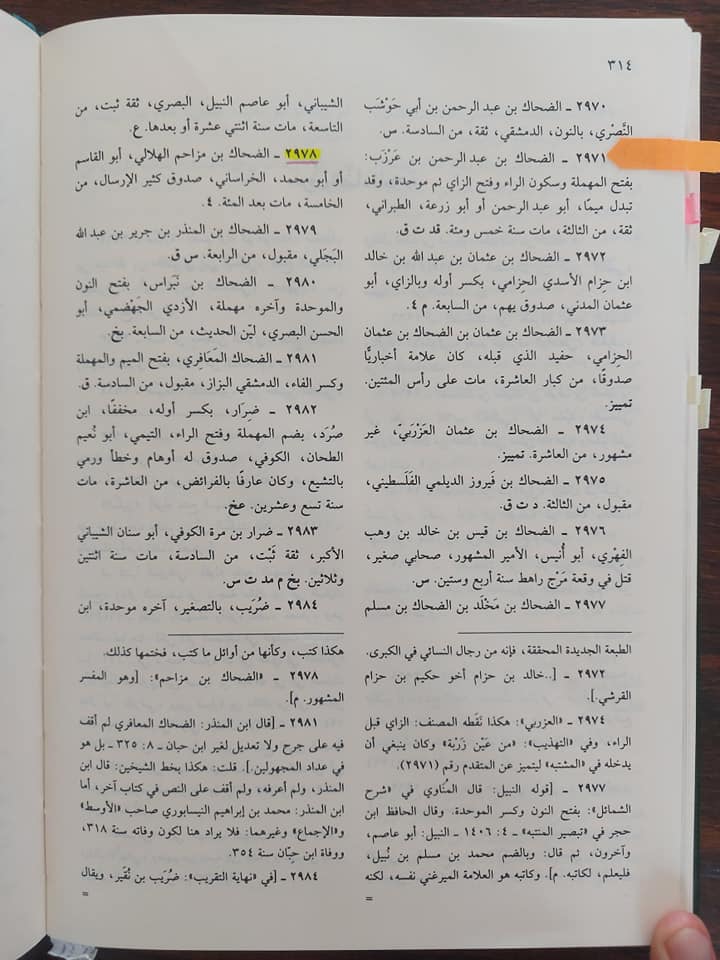 ٣١٤
٢٩٧٠ ـ الضحاك بن عبد الرحمن بن أبي حَوْشَب
النَّصْري، بالنون، الدمشقي، ثقة، من السادسة. س.
٢٩٧١ ـ الضحاك بن عبد الرحمن بن عَرْزَب:
بفتح المهملة وسكون الراء وفتح الزاي ثم موحدة، وقد
تبدل ميمًا، أبو عبد الرحمن أو أبو زرعة، الطبراني،
ثقة، من الثالثة، مات سنة خمس ومئة. قد ت ق.
٢٩٧٢ ـ الضحاك بن عثمان بن عبد الله بن خالد
ابن حِزام الأسدي الحِزامي، بكسر أوله وبالزاي، أبو
عثمان المدني، صدوق يهم، من السابعة. م ٤.
٢٩٧٣ ـ الضحاك بن عثمان بن الضحاك بن عثمان
الحِزامي، حفيد الذي قبله، كان علامة أخباريًّا
صدوقًا، من كبار العاشرة، مات على رأس المئتين.
تمييز.
٢٩٧٤ ـ الضحاك بن عثمان العَزْرَبيّ، غير
مشهور، من العاشرة. تمييز.
٢٩٧٥ ـ الضحاك بن فَيروز الديلمي الفَلَسطيني،
مقبول، من الثالثة. د ت ق.
٢٩٧٦ ـ الضحاك بن قيس بن خالد بن وهب
الفِهْري، أبو أُنيس، الأمير المشهور، صحابي صغير،
قتل في وقعة مَرْج راهط سنة أربع وستين. س.
٢٩٧٧ ـ الضحاك بن مَخْلَد بن الضحاك بن مسلم
الطبعة الجديدة المحققة، فإنه من رجال النسائي في الكبرى.
٢٩٧٢ ـ [..خالد بن حزام أخو حكيم بن حزام
القرشي.].
٢٩٧٤ ـ «العزربي»: هكذا نَقَطه المصنف: الزاي قبل
الراء، وفي «التهذيب»: «من عَيْن زَرْبة» وكان ينبغي أن
يدخله في «المشتبه» ليتميز عن المتقدم رقم (٢٩٧١).
٢٩٧٧ ـ [قوله النبيل: قال المُنَاوي في «شرح
الشمائل»: بفتح النون وكسر الموحدة. وقال الحافظ ابن
حجر في «تبصير المنتبه» ـ ٤: ١٤٠٦ ـ النبيل: أبو عاصم،
وآخرون، ثم قال: وبالضم محمد بن مسلم بن نُبيل،
فليعلم، لكاتبه. م]. وكاتبه هو العلامة الميرغني نفسه، لكنه
=
الشيباني، أبو عاصم النبيل، البصري، ثقة ثبت، من
التاسعة، مات سنة اثنتي عشرة أو بعدها. ع.
٢٩٧٨ ـ الضحاك بن مزاحم الهلالي، أبو القاسم
أو أبو محمد، الخراساني، صدوق كثير الإرسال، من
الخامسة، مات بعد المئة. ٤.
٢٩٧٩ ـ الضحاك بن المنذر بن جرير بن عبد الله
البَجَلي، مقبول، من الرابعة. س ق.
٢٩٨٠ ـ الضحاك بن نَبَراس، بفتح النون
والموحدة وآخره مهملة، الأزدي الجَهْضمي، أبو
الحسن البصري، ليّن الحديث، من السابعة. بخ.
٢٩٨١ ـ الضحاك المَعَافِري، بفتح الميم والمهملة
وكسر الفاء، الدمشقي البزاز، مقبول، من السادسة. ق.
٢٩٨٢ ـ ضِرَار، بكسر أوله، مخففًا، ابن
صُرَد، بضم المهملة وفتح الراء، التيمي، أبو نُعيم
الطحان، الكوفي، صدوق له أوهام وخطأ ورمي
بالتشيع، وكان عارفًا بالفرائض، من العاشرة، مات
سنة تسع وعشرين. عخ.
٢٩٨٣ ـ ضرار بن مرة الكوفي، أبو سنان الشيباني
الأكبر، ثقة ثَبْت، من السادسة، مات سنة اثنتين
وثلاثين. بخ م مد ت س.
٢٩٨٤ ـ ضُرَيب، بالتصغير، آخره موحدة، ابن
هكذا كتب، وكأنها من أوائل ما كتب، فختمها كذلك.
٢٩٧٨ ـ «الضحاك بن مزاحم»: [وهو المفسر
المشهور. م].
٢٩٨١ ـ [قال ابن المنذر: الضحاك المعافري لم أقف
فيه على جرح ولا تعديل لغير ابن حبان ـ ٨: ٣٢٥ ـ بل هو
في عداد المجهولين.]. قلت: هكذا بخط الشيخين: قال ابن
المنذر، ولم أعرفه، ولم أقف على النص في كتاب آخر، أما
ابن المنذر: محمد بن إبراهيم النيسابوري صاحب «الأوسط»
و«الإجماع» وغيرهما: فلا يراد هنا لكون وفاته سنة ٣١٨،
ووفاة ابن حِبّان سنة ٣٥٤.
٢٩٨٤ ـ [في «نهاية التقريب»: ضُرَيب بن نُقَير، ويقال
=